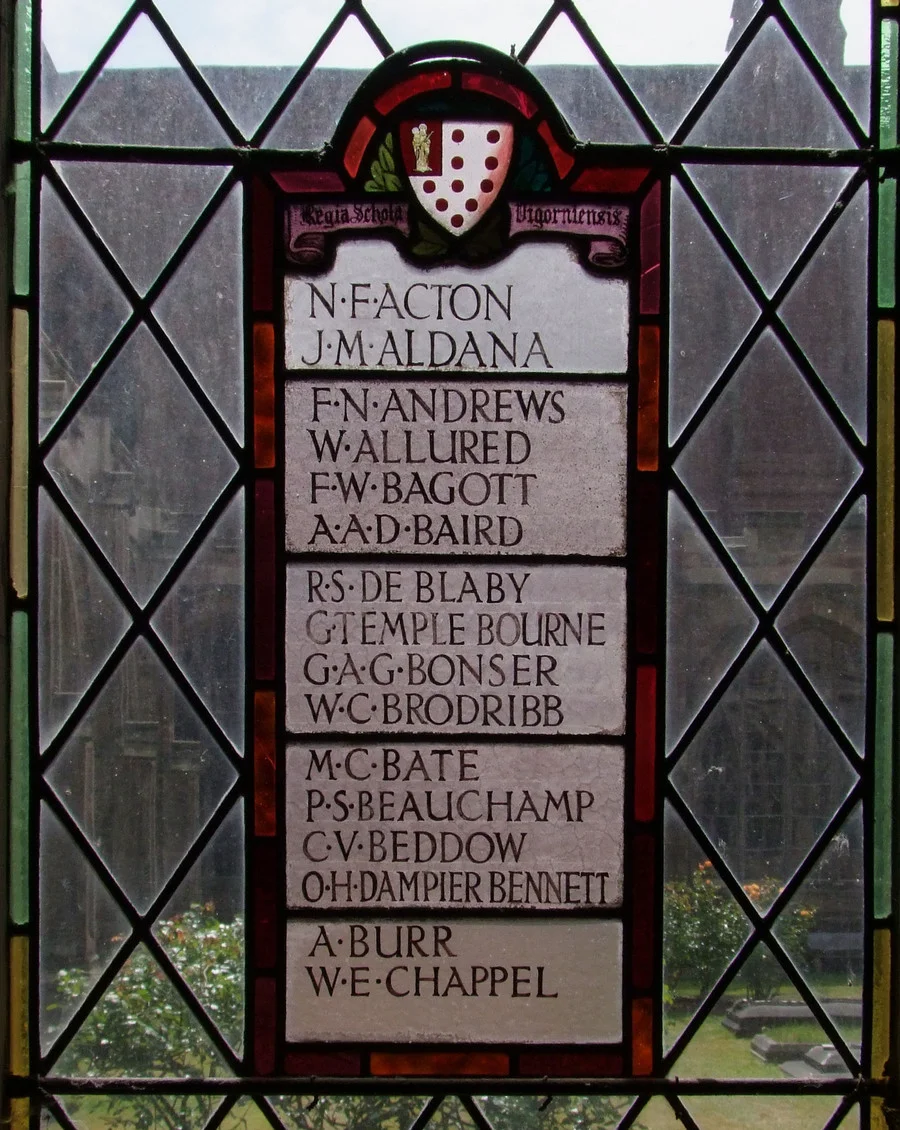 Regia Schola Vigorniensis
N·F·ACTON
J·M·ALDANA
F·N·ANDREWS
W·ALLURED
F·W·BAGOTT
A·A·D·BAIRD
R·S·DE BLABY
G·TEMPLE BOURNE
G·A·G·BONSER
W·C·BRODRIBB
M·C·BATE
P·S·BEAUCHAMP
C·V·BEDDOW
O·H·DAMPIER BENNETT
A·BURR
W·E·CHAPPEL